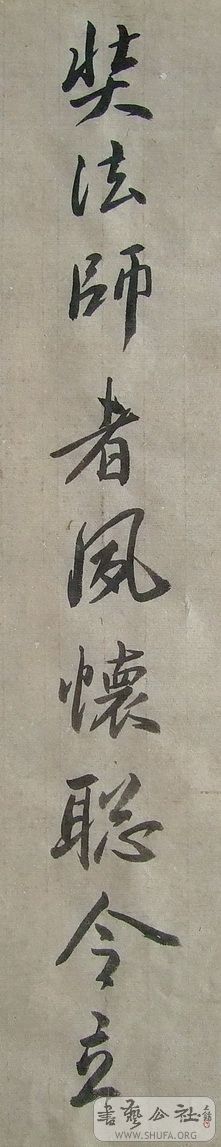 奘法師者夙懷聰令立
書藝公社
WWW.SHUFA.ORG